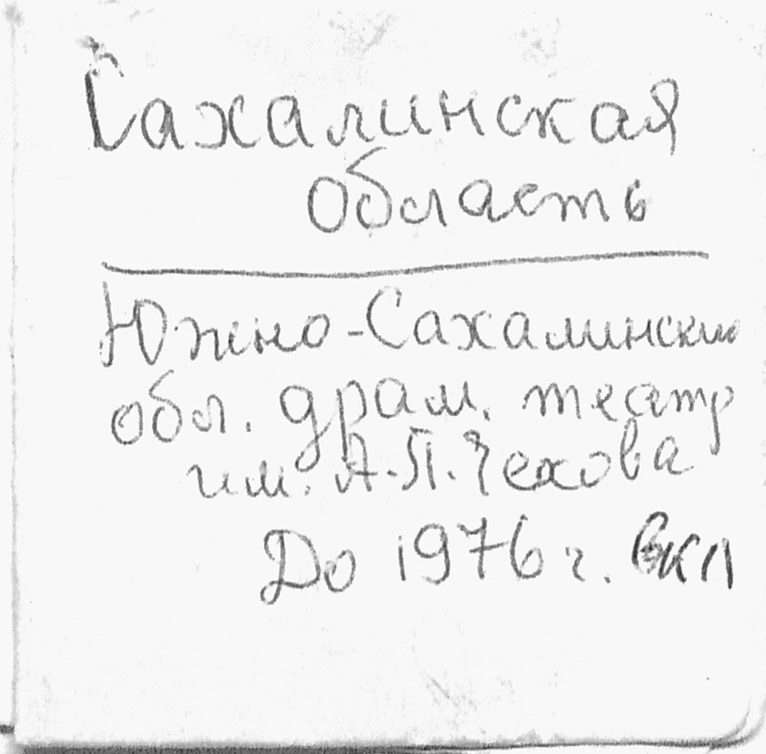 Сахалинская
область
Южно-Сахалинский
обл. драм. театр
им. А.П. Чехова
До 1976 г. вкл